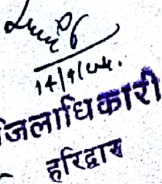 14/9/04.
जिलाधिकारी
हरिद्वार